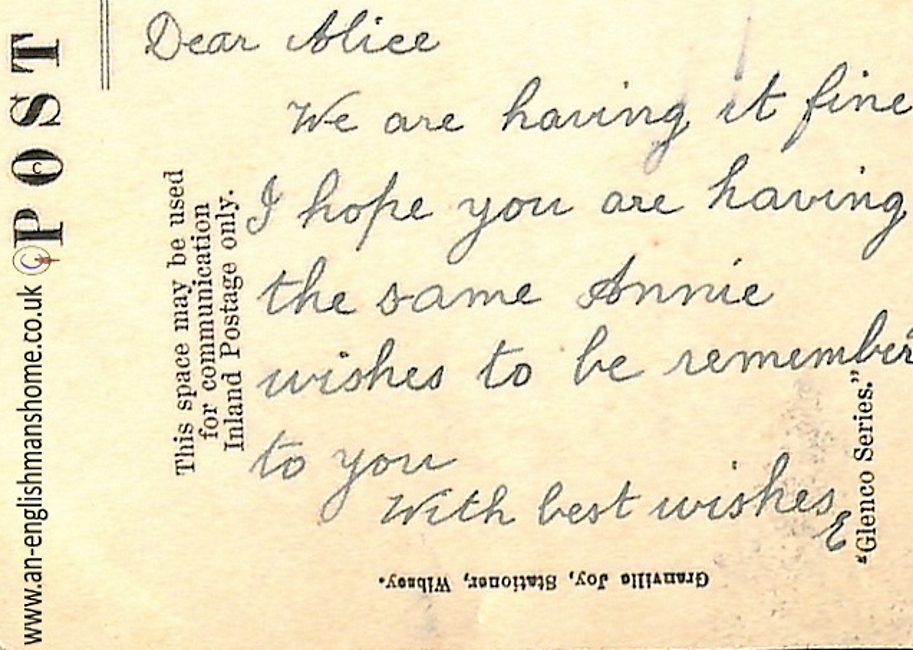 Dear Alice
We are having it fine
I hope you are having
the same Annie
wishes to be remember
to you
With best wishes
E
POST
C
This space may be used
for communication
Inland Postage only.
"Glenco Series."
Granville Joy, Stationer, Wibsey.
www.an-englishmanshome.co.uk